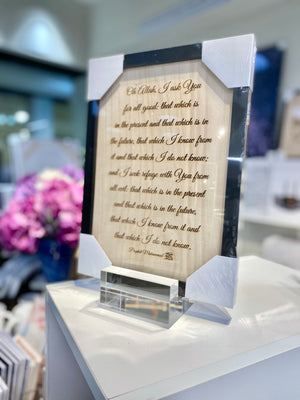 Oh Allah, I ask You
for all good: that which is
in the present and that which is in
the future, that which I know from
it and that which I do not know;
and I seek refuge with You from
all evil: that which is in the present
and that which is in the future,
that which I know from it and
that which I do not know.
Prophet Muhammad ﷺ